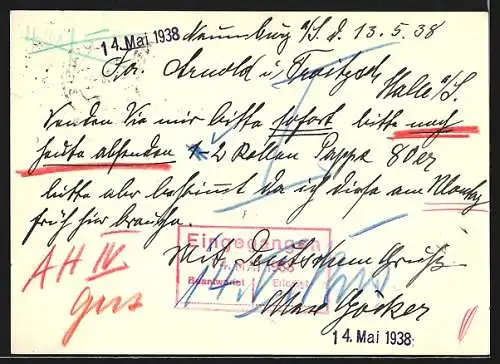 14. Mai 1938
Naumburg a/S. d. 13.5.38
Fa. Arnold u. Troitzsch
Halle a/S.
Senden Sie mir bitte sofort bitte noch
heute absenden 2 Rollen Pappe 80er
bitte aber bestimmt da ich diese am Montag
früh hier brauche.
Mit Deutschem Gruß
Eingegangen
MAI 1938
Beantwortet Erledigt
AH IV
gut
Max Göcker
14. Mai 1938